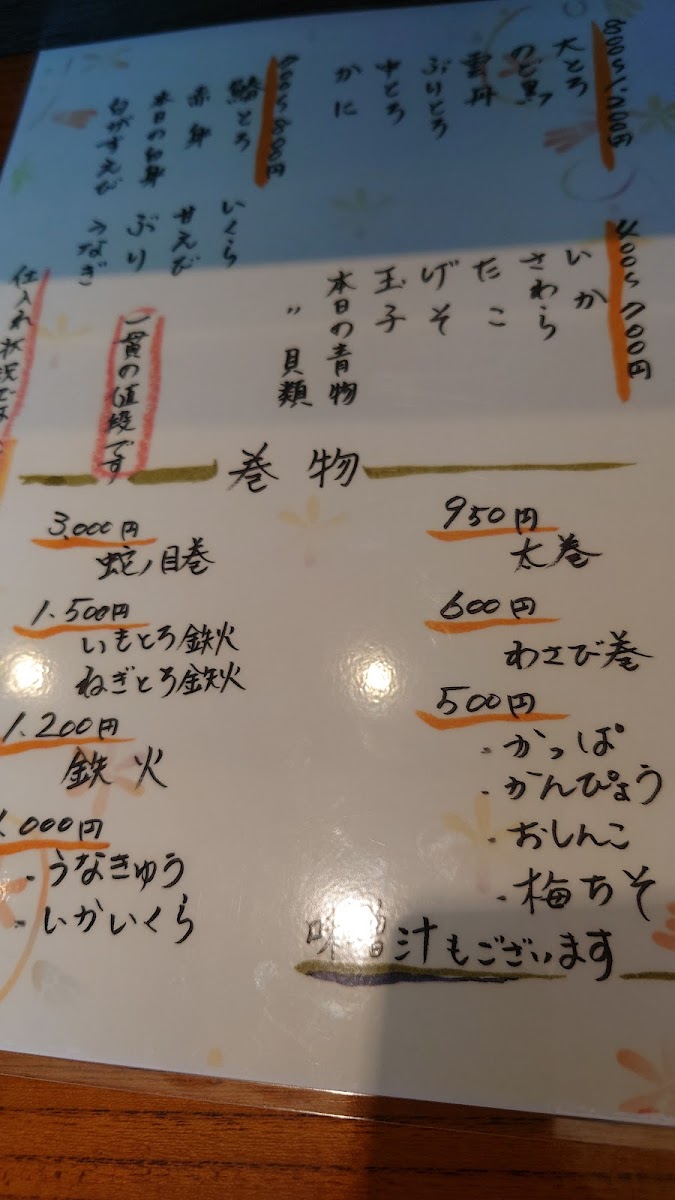 800〜1,000円
大とろ
のど黒
雲丹
ぶりとろ
中とろ
かに
600〜800円
鰺とろ
赤身
本日の白身
白がすえび
いくら
甘えび
ぶり
うなぎ
400〜700円
いか
さわら
たこ
げそ
玉子
本日の青物
〃 貝類
一貫の値段です
仕入れ状況では
巻物
950円
太巻
600円
わさび巻
500円
・かっぱ
・かんぴょう
・おしんこ
・梅ちそ
3,000円
蛇ノ目巻
1.500円
いもとろ鉄火
ねぎとろ鉄火
1.200円
鉄火
000円
・うなきゅう
・いかいくら
味噌汁もございます